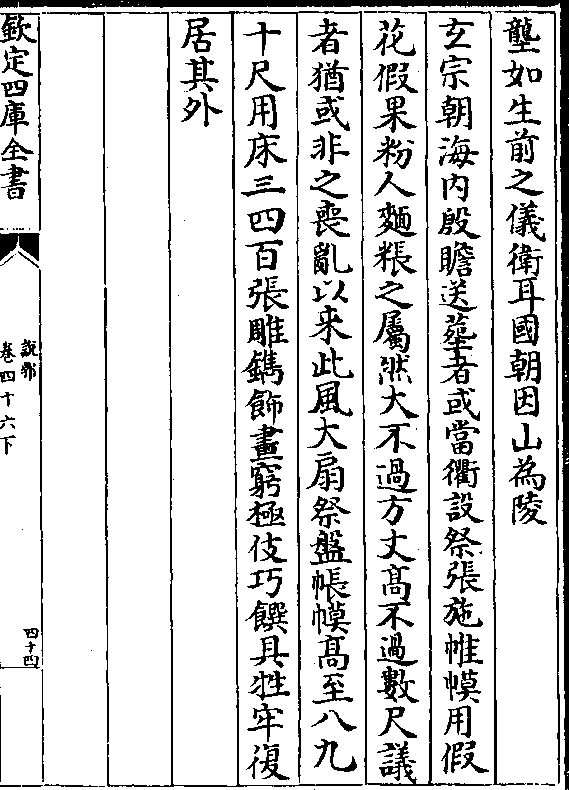 壟如生前之儀衛耳國朝因山為陵
玄宗朝海内殷贍送葬者或當衢設祭張施帷幙用假
花假果粉人麵粻之屬然大不過方丈髙不過數尺議
者猶或非之喪亂以来此風大扇祭盤帳幙髙至八九
十尺用床三四百張雕鐫飾畫窮極伎巧饌具牲牢復
居其外
欽定四庫全書
說郛
卷四十六下
四十四